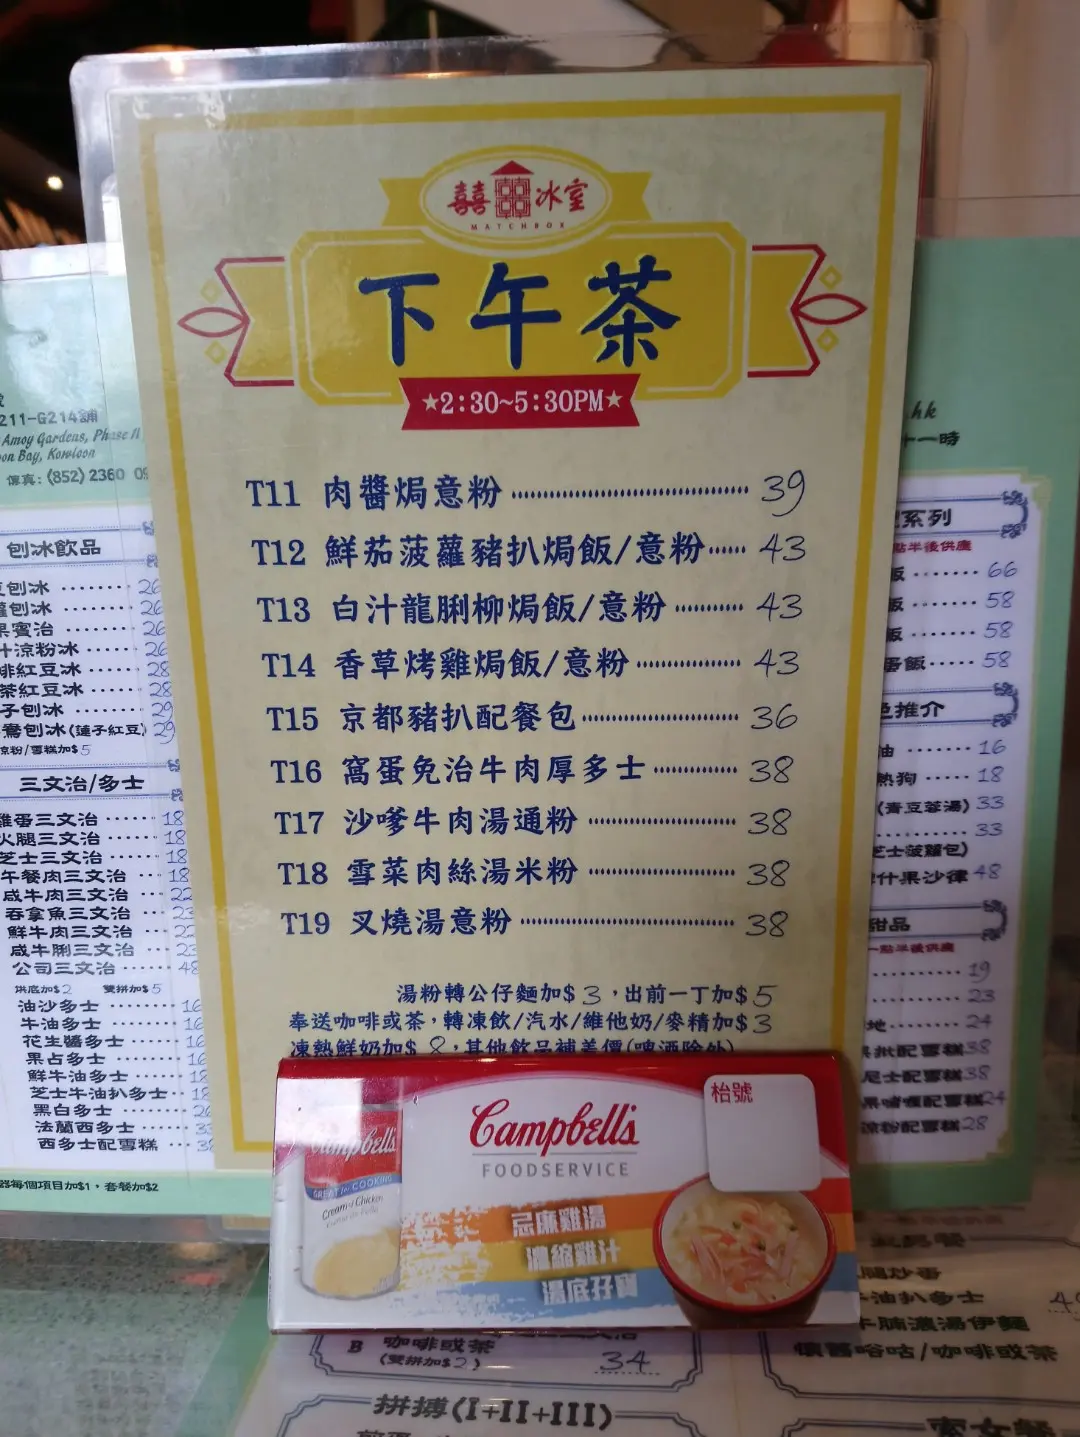 囍囍 囍 冰室
MATCHBOX
下午茶
★2:30~5:30PM★
T11 肉醬焗意粉 39
T12 鮮茄菠蘿豬扒焗飯/意粉 43
T13 白汁龍脷柳焗飯/意粉 43
T14 香草烤雞焗飯/意粉 43
T15 京都豬扒配餐包 36
T16 窩蛋免治牛肉厚多士 38
T17 沙嗲牛肉湯通粉 38
T18 雪菜肉絲湯米粉 38
T19 叉燒湯意粉 38
湯粉轉公仔麵加$3，出前一丁加$5
奉送咖啡或茶，轉凍飲/汽水/維他奶/麥精加$3
凍熱鮮奶加$8，其他飲品補差價(啤酒除外)
Campbell's
FOODSERVICE
枱號
Campbell's
GREAT for COOKING
Cream of Chicken
忌廉雞湯
濃縮雞汁
湯底孖寶
211-G214舖
Amoy Gardens, Phase II
on Bay, Kowloon
傳真: (852) 2360 09
刨冰飲品
刨冰 26
刨冰 26
果賓治 26
汁涼粉冰 26
啡紅豆冰 28
茶紅豆冰 28
子刨冰 29
鴦刨冰(蓮子紅豆) 29
涼粉/雪糕加$5
三文治/多士
雞蛋三文治 18
火腿三文治 18
芝士三文治 18
午餐肉三文治 18
咸牛肉三文治 22
吞拿魚三文治 23
鮮牛肉三文治 22
咸牛脷三文治 23
公司三文治 48
烘底加$2 雙拼加$5
油沙多士 16
牛油多士 16
花生醬多士 16
果占多士 16
鮮牛油多士 18
芝士牛油扒多士 18
黑白多士 26
法蘭西多士 33
西多士配雪糕 38
器每個項目加$1，套餐加$2
.hk
十一時
系列
點半後供應
飯 66
飯 58
飯 58
蛋飯 58
色推介
油 16
熱狗 18
(青豆蓉湯) 33
33
芝士菠蘿包)
什果沙律 48
甜品
一點半後供應
19
23
地 24
果批配雪糕 38
尼士配雪糕 38
果啫喱配雪糕 24
涼粉配雪糕 28
B 咖啡或茶
(雙拼加$2) 34
拼搏(I+II+III)
腿炒蛋
油扒多士
牛腩濃湯伊麵
懷舊唂咕/咖啡或茶